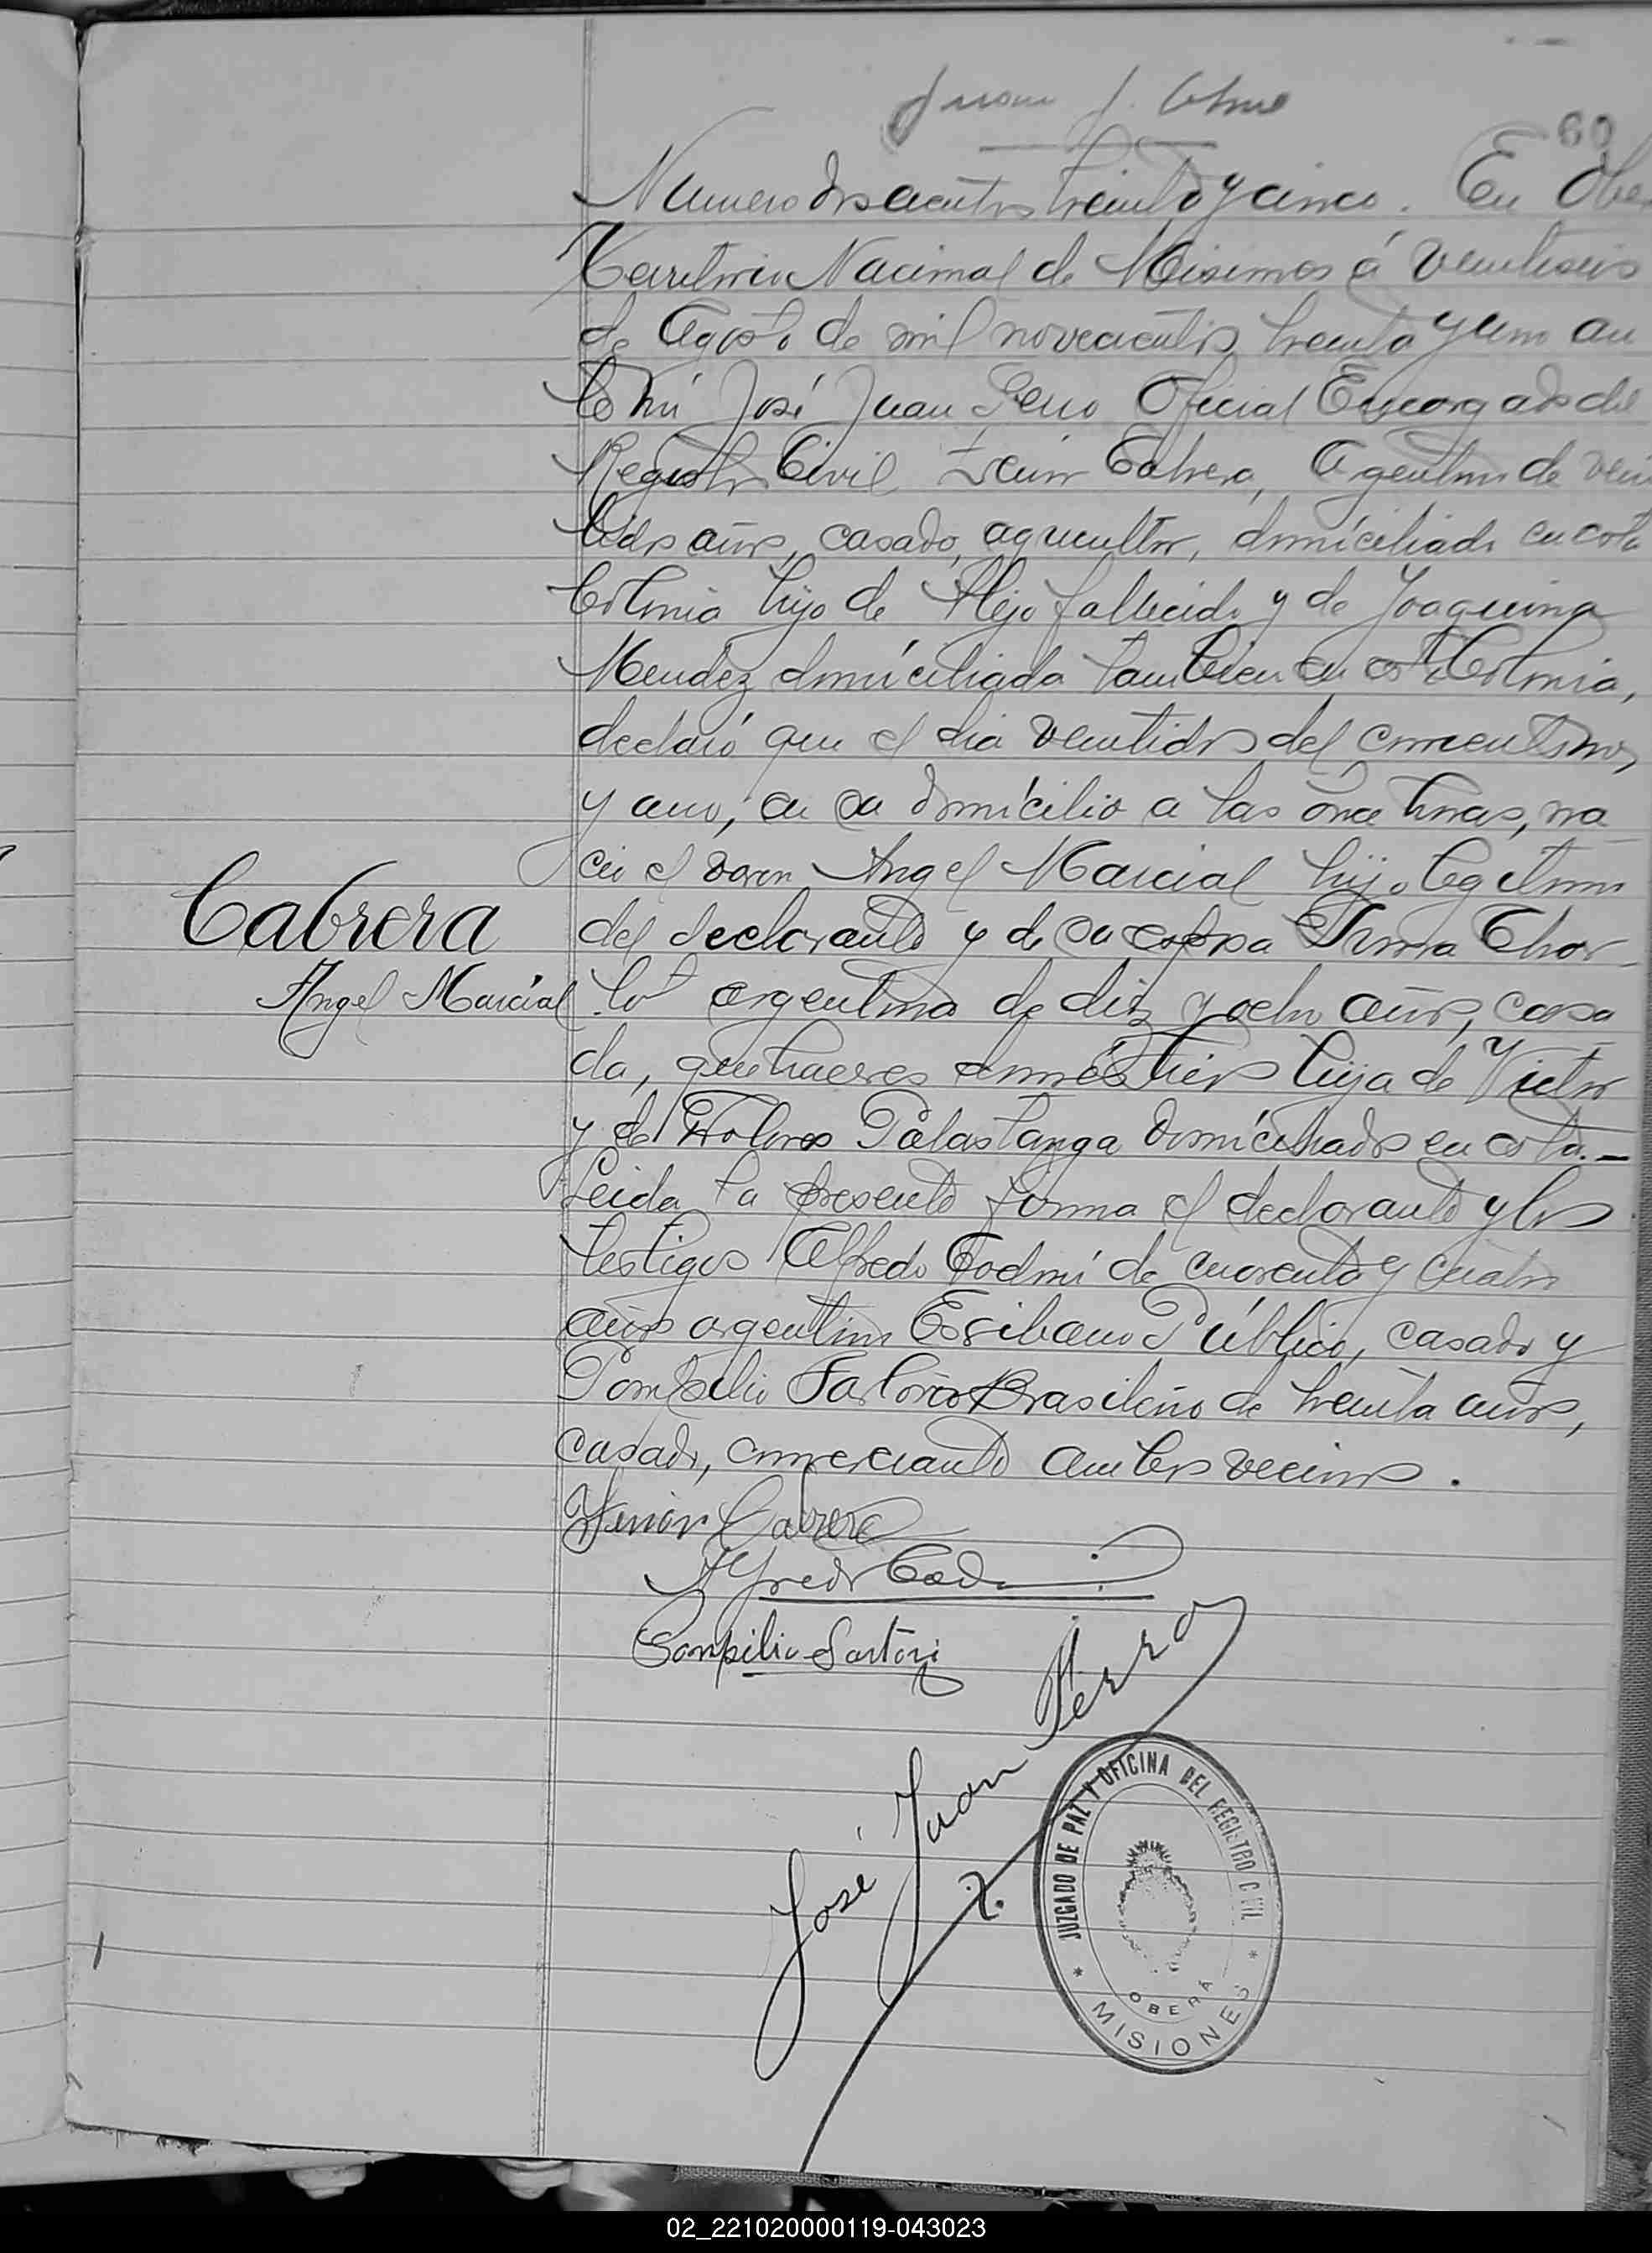 Juan J.
60
Numero doscientos treinta y cinco. En Obe
Territorio Nacional de Misiones á veintiseis
de Agosto de mil novecientos treinta y uno an
te mi José Juan Perro Oficial Encargado del
Registro Civil Cabrera, Argentino de vein
tidos años, casado, agricultor, domiciliado en esta
Colonia hijo de Alejo fallecido y de Joaquina
Mendez domiciliada tambien en esta Colonia,
declaró que el dia veintidos del corriente mes
y año, en su domicilio a las once horas, na
ció el varon Angel Marcial hijo legitimo
Cabrera
del declarante y de su esposa Irma Chor-
Angel Marcial
lot argentina de diez y ocho años, casa
da, quehaceres domésticos hija de Victor
y de Dolores Palastanga domiciliados en esta.-
Leida la presente firma el declarante y los
testigos Alfredo Codmi de cuarenta y cuatro
años argentino Escribano Público, casado y
Pompilio Sartori Brasileño de treinta años,
casado, comerciante ambos vecinos.
Cabrera
Alfredo
Pompilio Sartori
José Juan Perro
JUZGADO DE PAZ Y OFICINA DEL REGISTRO CIVIL
OBERÁ
* MISIONES *
02_221020000119-043023